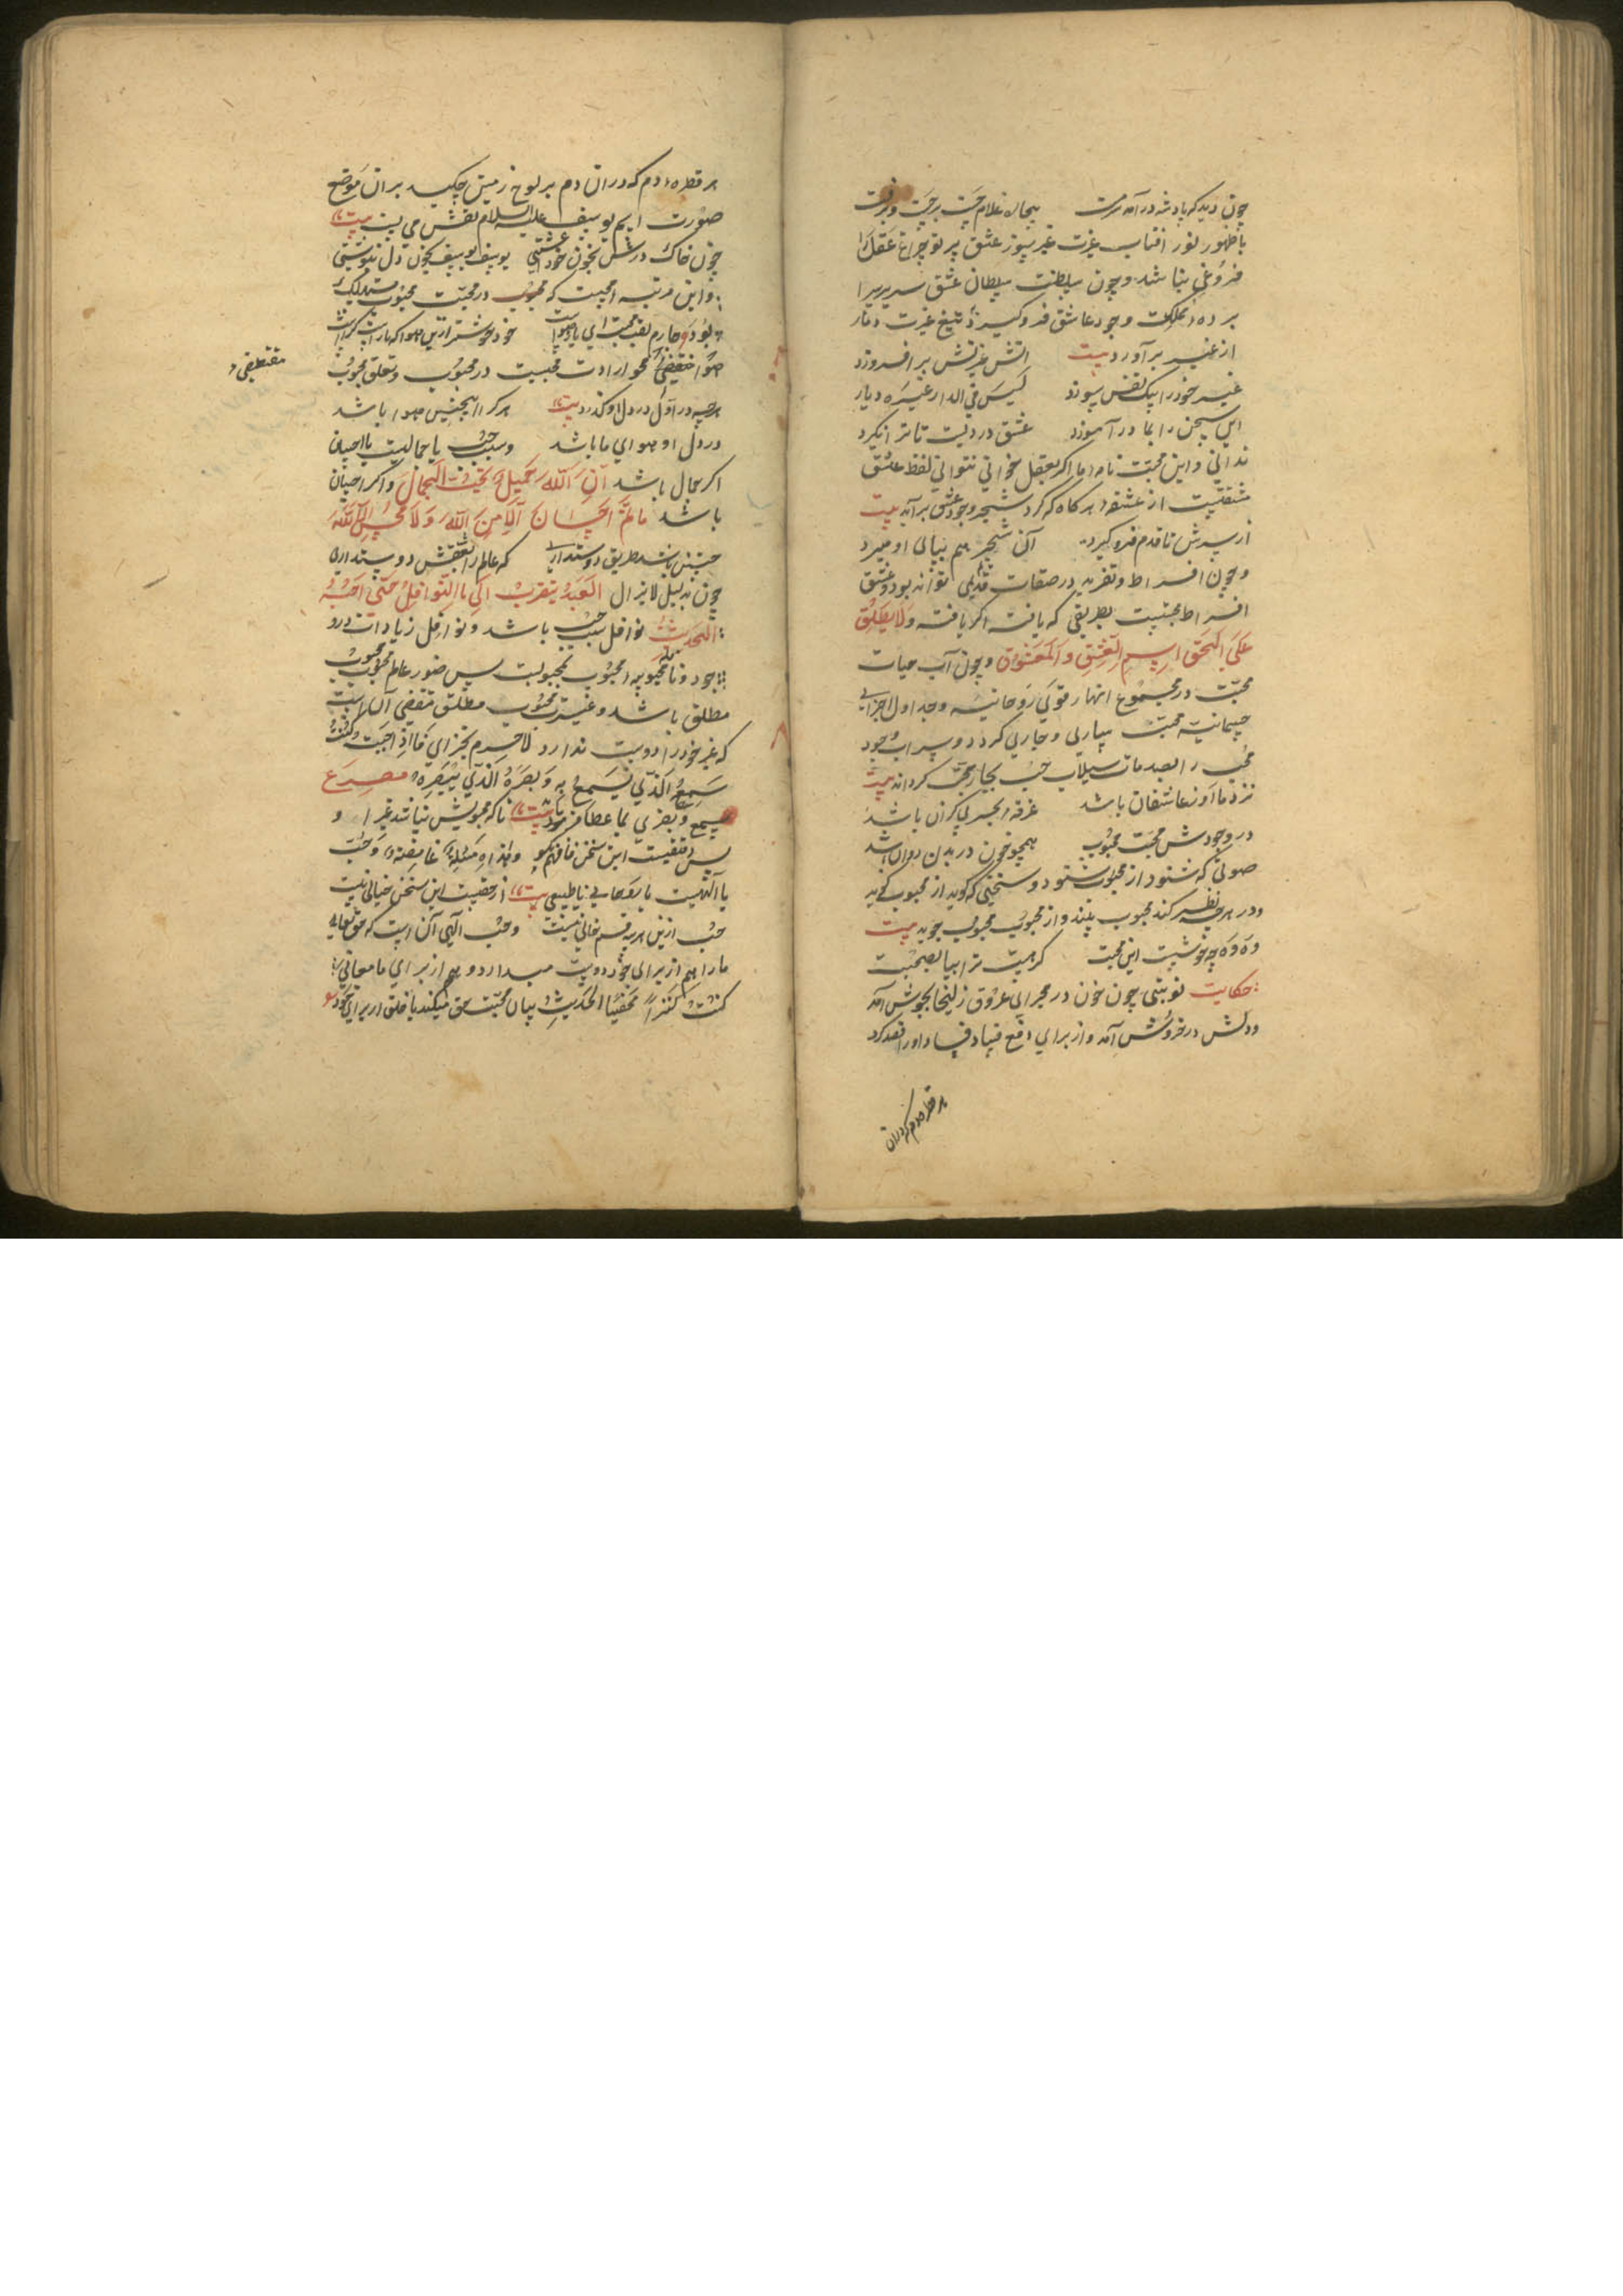 چون دید که پادشه در آمد سرمست بیچاره غلام جست برجست و برفت
با ظهور نور افتاب عزت غیر سوز عشق پرتو چراغ عقل را
فروغی نباشد و چون سلطنت سلطان عشق سریر سرا
پرده مملکت وجود عاشق فرو گیرد تیغ غیرت دمار
از غیر برآورد بیت اتش غیرتش بر افروزد
غیر خود را بیک نفس سوزد لَیسَ فی الدار غیرَه دیار
این سخن را بما در آموزد عشق در دلیت تا تر انکرد
ندانی و این محبت نامه را اکر بعقل خوانی نتوانی لفظ عشق
مشتقیست از عشقه هرکاه که کرد شجر وجود عشق برآید بیت
از سرش تا قدم فرو کیرد آن شجر هم بپای او میرد
و چون افراط و تفرید در صفات قدیمی تواند بود و عشق
افراط محبتست بطریقی که یافت اکر یافت وَلا یطلَقُ
عَلَی الحَقِ اسم العِشقِ و المَعشُوق و چون آب حیات
محبت در مجموع انهار قوی روحانیه و جداول اجزای
جسمانیه محبت ساری و جاری کردد و سراب وجود
محب را بصدمات سیلاب حب بحار محبت کرداند بیت
نزد ما او ز عاشقان باشد غرقه بحر بی کران باشد
در وجودش محبت محبوب همچو خون در بدن روان باشد
صوتی که شنود از محبوب شنود و سخنی که کوید از محبوب کوید
و در هرچه نظر کند محبوب بیند و از محبوب محبوب جوید بیت
وه وه چه خوشست این محبت کر هست ترا بیا بصحبت
حکایت نوبتی چون خون در مجرای عروق زلیخا بجوش آمد
و دلش در خروش آمد و از برای دفع فساد فصاد او را فصد کرد
هر قطره دم که دران
هر قطره دم که دران دم بر لوح زمین چکید بران موضع
صورت اسم یوسف علیه السلام نقش می بست بیت
چون خاک درش بخون خود آغشتی یوسف یوسف بخون دل ننوشتی
و این مرتبه محبیست که محبوب در محبت محبوب مستهلک
بود و چهارم لقب محبت ای یار هواست خود خوشتر ازین هوا کرا راست کراست
هوا مقتضی محو ارادت محبست در محبوب و تعلق محبوب
مقتضی
هرچه در آوّل در دل او کذرد بیت هر کرا اینچنین هوا باشد
در دل او هوای ما باشد و سبب حب یا جمالست یا احسان
اکر جمال باشد اِنَ اللّهَ جَمیلٌ وَ یُحِبُ الجَمالَ و اکر احسان
باشد ما لم الاحسان الا مِن اللّه ولا محسن الا اللّه
حسنش باشد طریق دوستداری که عالم را بعشقش دوستداری
چون بدلیل لایزال العَبدُ یتقربُ الیّ بالنوافل حَتی اُحِبُّهُ
الحدیث نوافل سبب حب باشد و نوافل زیادات درو
جود و نامحبوبه محبوب محبوبست پس صور عالم محبوب محبوب
مطلق باشد و غیرت محبوب مطلق مقتضی آن است
که غیر خود را دوست ندارد لا جرم بجزای فاذا احببت کُنتُ
سَمعهُ الَذّی یَسمَعُ به وَ بَصَرَهُ الّذی یُبصِرُ به مصرع
سمع و بصری بما عطا فرمود بیت تا که محبوبش نباشد غیر او
پس دقیقست این سخن فافهم نکو و هذه مَسئلة غامِضة و حب
یا الهیست یا روحانی یا طبیعی بیت از حقیقت این سخن خیالی نیست
حب ازین هرسه قسم خالی نیست و حب آلهی آن است که حق تعالی
ما را هم از برای خود دوست میدارد و هم از برای ما معانی
کنتُ کنزاً مخفیّا الحدیث بیان محبت حق میکند با خلق از برای خود